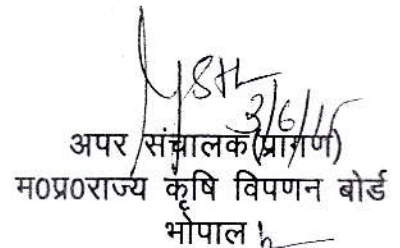 3/6/15
अपर संचालक(प्रांगण)
म0प्र0राज्य कृषि विपणन बोर्ड
भोपाल